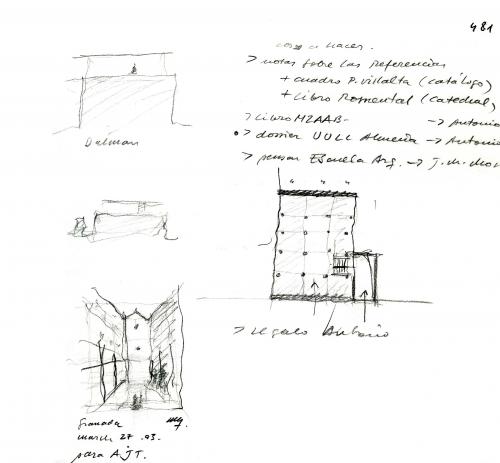 481
cosas a hacer.
> notas sobre las referencias
+ cuadro P. Villalta (catálogo)
+ libro Romental (catedral)
> libro MZAAB -> Antonio
• > dossier UULL Almería -> Antonio
> pensar Escuela Arq. -> J.M.
Dalman
4 4 4
> regalo Antonio
Granada
march 27 .93.
para AJT.